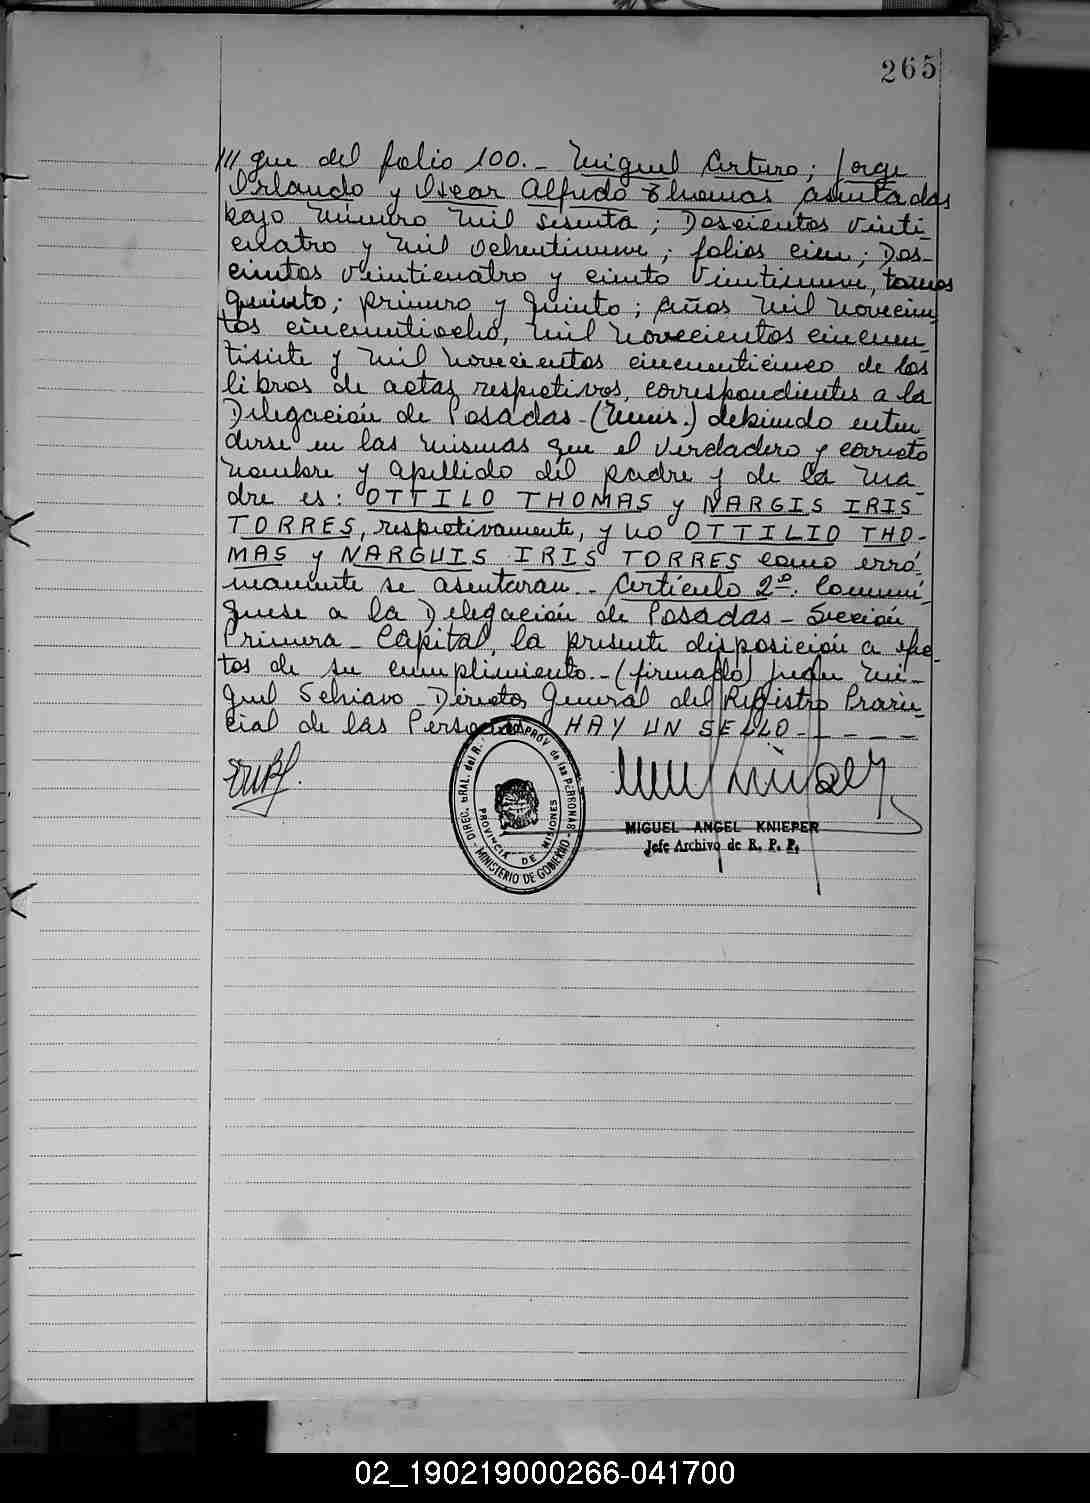 265
/// que del folio 100. - Miguel Arturo; Jorge
Orlando y Oscar Alfredo Thomas asentadas
bajo número mil sesenta; Doscientos veinti-
cuatro y mil ochentinueve; folios cien; Dos-
cientos veinticuatro y ciento veintinueve, tomos
quinto; primero y quinto; años mil novecien-
tos cincuentiocho, mil novecientos cincuen-
tisiete y mil novecientos cincuenticinco de los
libros de actas respetivos, correspondientes a la
Delegación de Posadas - (Mnes.) debiendo enten
derse en las mismas que el verdadero y correcto
nombre y apellido del padre y de la ma-
dre es: OTTILO THOMAS y NARGIS IRIS
TORRES, respetivamente, y no OTTILIO THO-
MAS y NARGUIS IRIS TORRES como erró-
neamente se asentaran. - Artículo 2º. Comuní-
quese a la Delegación de Posadas - Sección
Primera - Capital, la presente disposición a efec-
tos de su cumplimiento. - (firmado) Juan Mi-
guel Schiavo - Director General del Registro Provin-
cial de las Personas HAY UN SELLO - - - - -
DIREC. GRAL. del R. PROV. de las PERSONAS
PROVINCIA DE MISIONES
- MINISTERIO DE GOBIERNO -
MIGUEL ANGEL KNIEPER
Jefe Archivo de R. P. P.
02_190219000266-041700